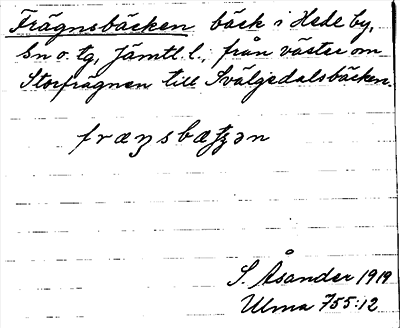 Frägnsbäcken bäck i Hede by,
Sn o. tg, Jämtl. l., från väster om
Storfrägnen till Svälgedalsbäcken.
S. Åsander 1919
Ulma 755:12